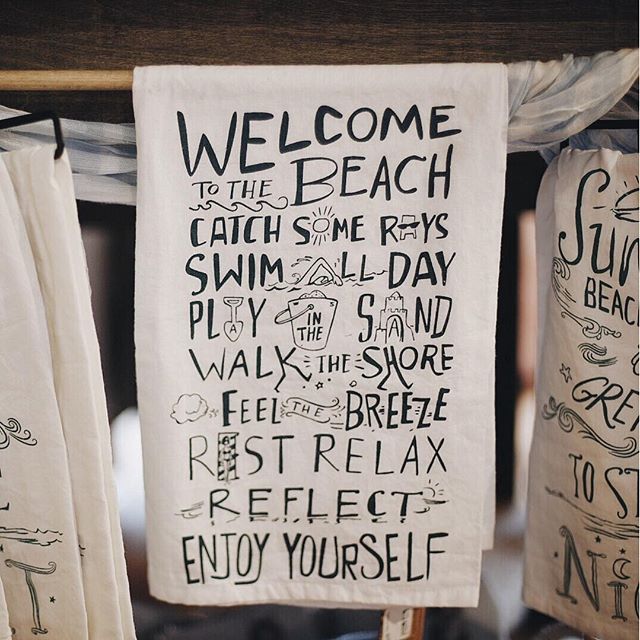 WELCOME
TO THE BEACH
CATCH SOME RAYS
SWIM ALL DAY
PLAY IN THE SAND
WALK THE SHORE
FEEL THE BREEZE
REST RELAX
REFLECT
ENJOY YOURSELF
BEACH
TO